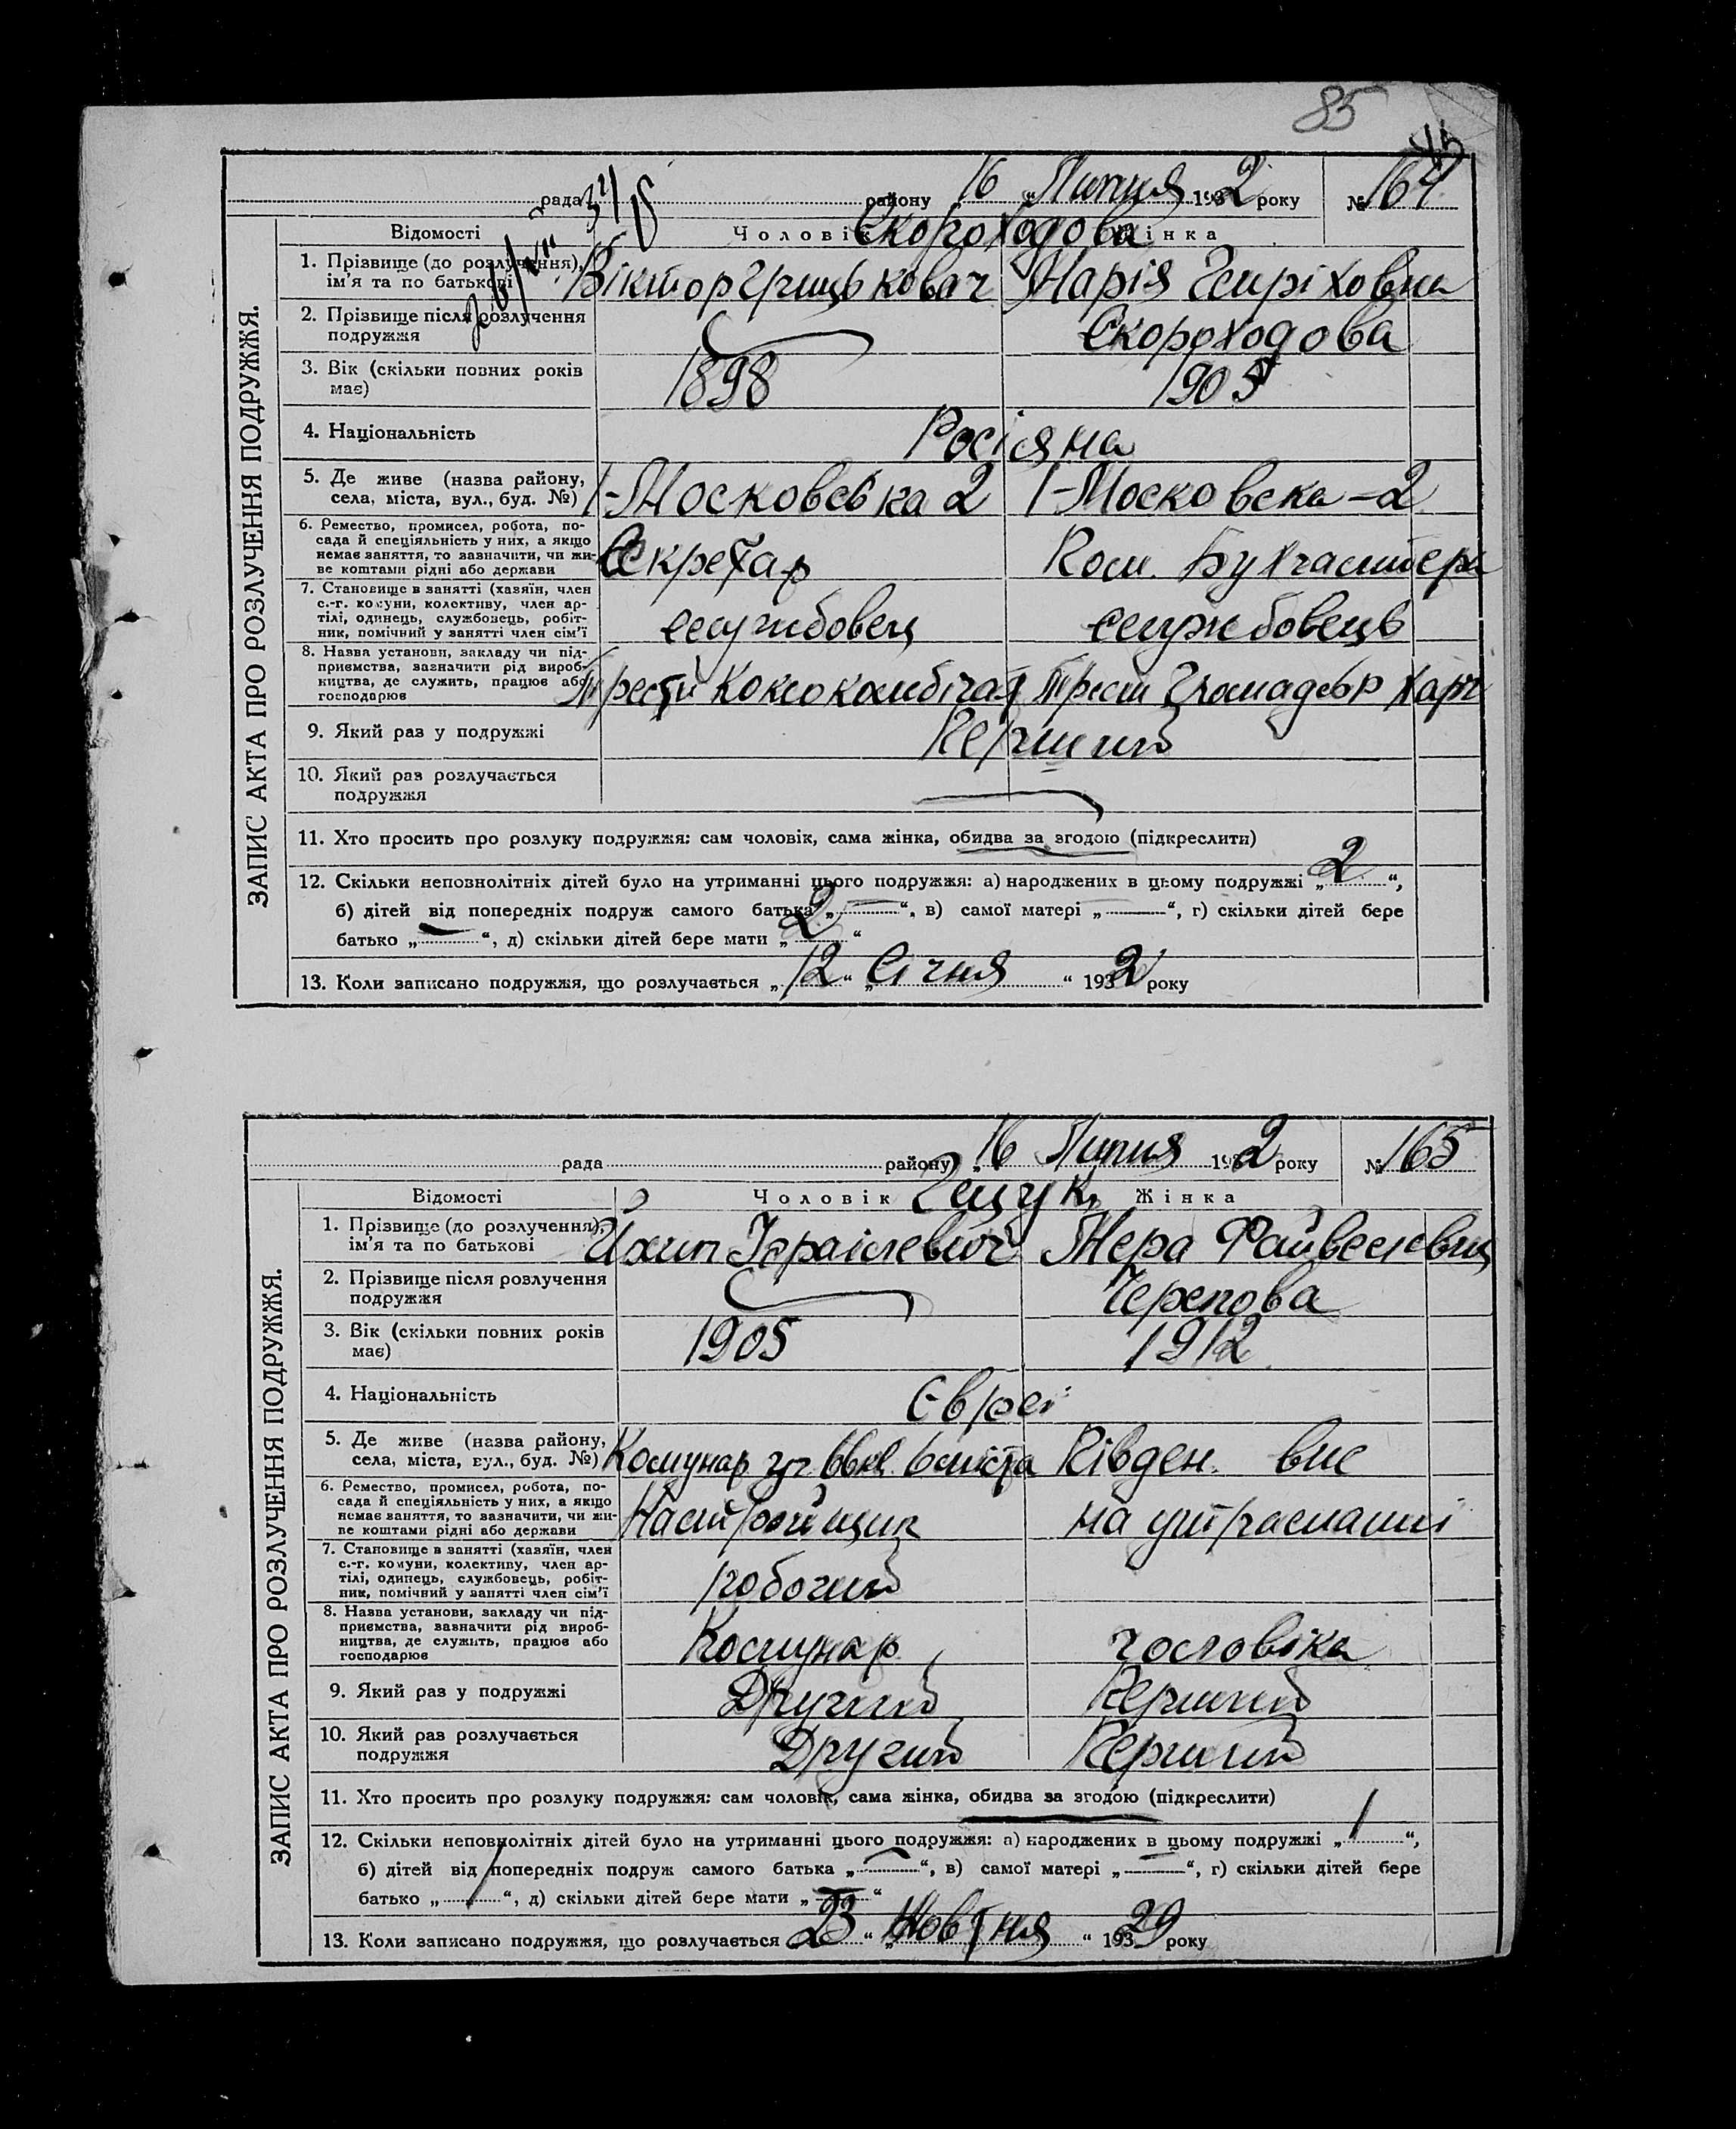 85
рада району „16 „Липня 1932 року № 164
Відомості Чоловік Скороходова Жінка
ЗАПИС АКТА ПРО РОЗЛУЧЕННЯ ПОДРУЖЖЯ.
1. Прізвище (до розлучення), ім'я та по батькові Віктор Грицькович Марія Генріховна
2. Прізвище після розлучення
подружжя Скороходова
3. Вік (скільки повних років
має) 1898 1905
4. Національність Росіяна
5. Де живе (назва району,
села, міста, вул., буд. №) 1-Московська 2 1-Московска-2
6. Ремество, промисел, робота, по-
сада й спеціяльність у них, а якщо
немає заняття, то зазначити, чи жи-
ве коштами рідні або держави Секретар Бухгалтера
7. Становище в занятті (хазяїн, член
с.-г. комуни, колективу, член ар-
тілі, одинець, службовець, робіт-
ник, помічний у занятті член сім'ї службовець службовець
8. Назва установи, закладу чи під-
приємства, зазначити рід вироб-
ництва, де служить, працює або
господарює Трест Трест Харч
9. Який раз у подружжі Перший
10. Який раз розлучається
подружжя
11. Хто просить про розлуку подружжя: сам чоловік, сама жінка, обидва за згодою (підкреслити)
12. Скільки неповнолітніх дітей було на утриманні цього подружжя: а) народжених в цьому подружжі „2“,
б) дітей від попередніх подруж самого батька „—“, в) самої матері „—“, г) скільки дітей бере
батько „—“, д) скільки дітей бере мати „2“
13. Коли записано подружжя, що розлучається „12“ „Січня“ 1932 року
рада району „16 Липня 1932 року № 165
Відомості Чоловік Гещук Жінка
ЗАПИС АКТА ПРО РОЗЛУЧЕННЯ ПОДРУЖЖЯ.
1. Прізвище (до розлучення),
ім'я та по батькові Ізраілевич Мера Файвелевна
2. Прізвище після розлучення
подружжя Черепова
3. Вік (скільки повних років
має) 1905 1912
4. Національність Євреі
5. Де живе (назва району,
села, міста, вул., буд. №) Комунар Півден.
6. Ремество, промисел, робота, по-
сада й спеціяльність у них, а якщо
немає заняття, то зазначити, чи жи-
ве коштами рідні або держави Настройщик на утриманні
7. Становище в занятті (хазяїн, член
с.-г. комуни, колективу, член ар-
тілі, одинець, службовець, робіт-
ник, помічний у занятті член сім'ї робочий
8. Назва установи, закладу чи під-
приємства, зазначити рід вироб-
ництва, де служить, працює або
господарює Комунар чоловіка
9. Який раз у подружжі Другий Перший
10. Який раз розлучається
подружжя Другий Перший
11. Хто просить про розлуку подружжя: сам чоловік, сама жінка, обидва за згодою (підкреслити)
12. Скільки неповнолітніх дітей було на утриманні цього подружжя: а) народжених в цьому подружжі „1“,
б) дітей від попередніх подруж самого батька „—“, в) самої матері „—“, г) скільки дітей бере
батько „1“, д) скільки дітей бере мати „—“
13. Коли записано подружжя, що розлучається „23“ „Жовтня“ 193 29 року